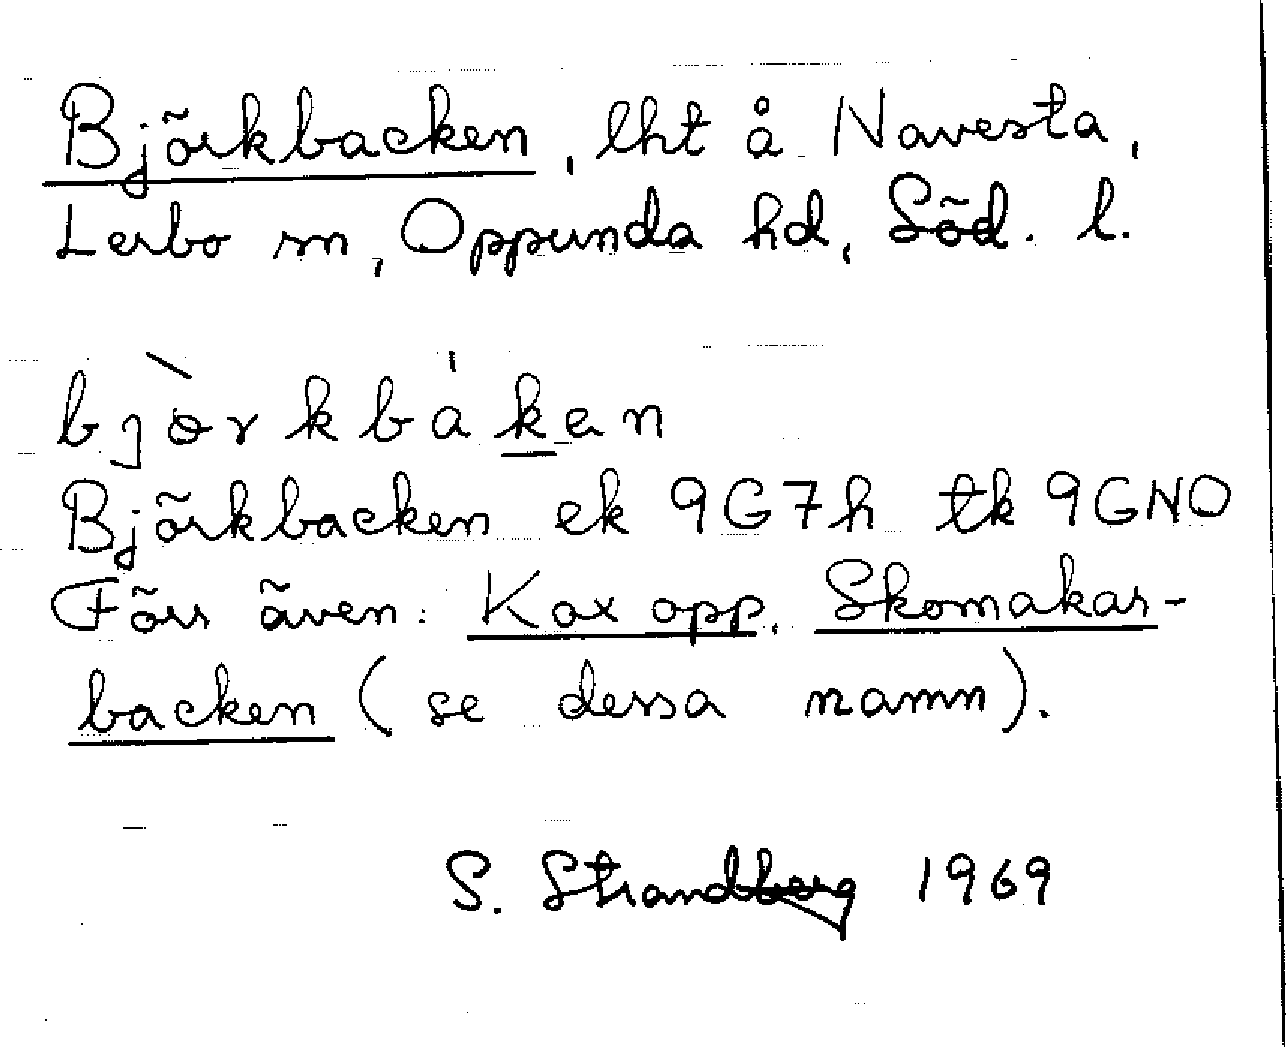 Björkbacken, lht å Navesta,
Lerbo sn, Oppunda hd, Söd. l.
bjòrkbáken
Björkbacken ek 9G7h tk 9GNO
Förr även: Kax opp, Skomakar-
backen (se dessa namn).
S. Strandberg 1969